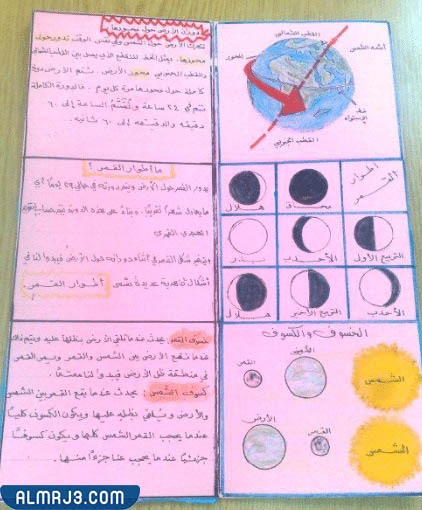 دوران الأرض حول محورها
تتحرك الأرض حول الشمس وفي نفس الوقت تدور حول
محورها. يمثل الخط الذي يصل بين القطب الشمالي
والقطب الجنوبي محور الأرض. تتم الأرض دورة
كاملة حول محورها مرة كل يوم. فالدورة الكاملة
تتم في ٢٤ ساعة وتُقسَّم الساعة إلى ٦٠
دقيقة والدقيقة إلى ٦٠ ثانية.
القطب الشمالي
أشعة الشمس
المحور
خط
الإستواء
القطب الجنوبي
ما أطوار القمر؟
يدور القمر حول الأرض ودورته في حوالي ٢٩ يومًا أي
ما يعادل شهرًا تقريبًا. وبناءً على هذه الدورة يتم حساب
الهجري القمري
ويتغير شكل القمر في أثناء دورانه حول الأرض فيبدو لنا في
أشكال ظاهرية عديدة تسمى أطوار القمر.
أطوار
القمر
محاق
هلال
التربيع الأول
الأحدب
بدر
الأحدب
التربيع الأخير
هلال
خسوف القمر: يحدث عندما تلقي الأرض بظلها عليه ويتم ذلك
عندما تقع الأرض بين الشمس والقمر ويمر القمر
في منطقة ظل الأرض فيبدو لنا معتمًا.
كسوف الشمس: يحدث عندما يقع القمر بين الشمس
والأرض ويُلقي بظله عليها ويكون الكسوف كليًا
عندما يحجب القمر الشمس كلها ويكون كسوفًا
جزئيًا عندما يحجب عنا جزءًا منها.
الخسوف والكسوف
الشمس
الأرض
القمر
الشمس
القمر
الأرض
ALMRJ3.COM